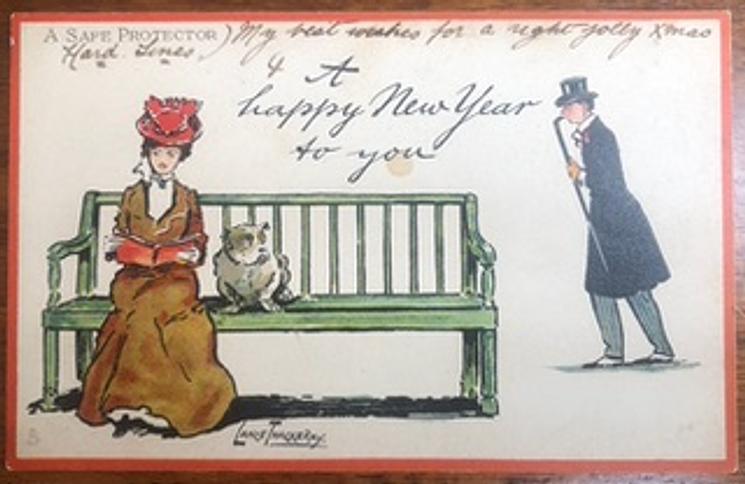 A SAFE PROTECTOR) My best wishes for a right jolly Xmas
Hard Lines
& A
happy New Year
to you
Lance Thackeray.